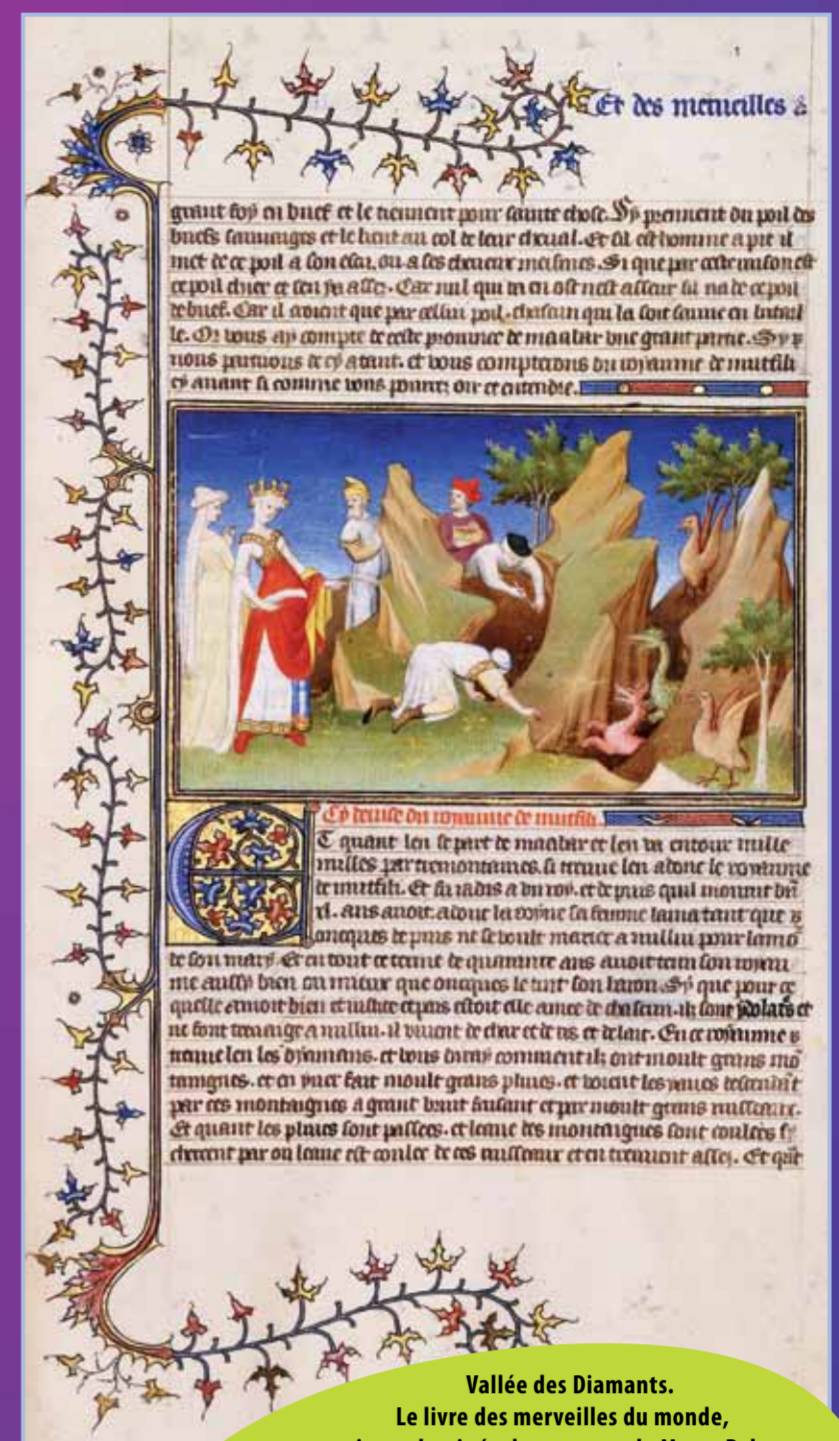 Et des merueilles
grant foy en buef et le tiennent pour sainte chose. Sy prennent du poil des
buefs sauuages et le lient au col de leur cheual. Et sil est homme a pie il
met de ce poil a son escu. ou a ses cheueux meismes. Si que par ceste raison est
ce poil chier et sen fa assez. Car nul qui va en ost nest asseur sil na de ce poil
de buef. Car il croient que par cellui poil. chascun qui la soit sauue en batail
le. Or vous ay compte de ceste prouince de maabar vne grant partie. Sy
nous partirons de cy atant. et vous compterons du royaume de mutfili
cy auant si comme vous pourrez oir et entendre.
Cy deuise du royaume de mutfili.
Et quant len se part de maabar et len va entour mille
milles par tremontaines. si treuue len adonc le royaume
de mutfili. Et fu iadis a vn roy. et de puis quil mourut bn̄
xl. ans auoit. adonc la royne sa femme lama tant que
oncques de puis ne se voult marier a nullui pour lamo
de son mary. Et en tout ce terme de quarante ans auoit tenu son royau
me aussy bien ou mieux que oncques le tint son baron. Sy que pour ce
quelle amoit bien et iustice et pais estoit elle amee de chascun. ilz sont ydolatres et
ne font treuage a nullui. il viuent de char et de ris et de lait. En ce royaume
treuue len les dyamans. et vous diray comment ilz ont moult grans mo
taignes. et en yuer fait moult grans pluies. et voient les yaues descendant
par ces montaignes a grant bruit faisant et par moult grans ruisseaux.
Et quant les pluies sont passees. et leaue des montaignes sont coulees
cherchent par ou leaue est coulee de ces ruisseaux et en treuuent assez. Et
Vallée des Diamants.
Le livre des merveilles du monde,